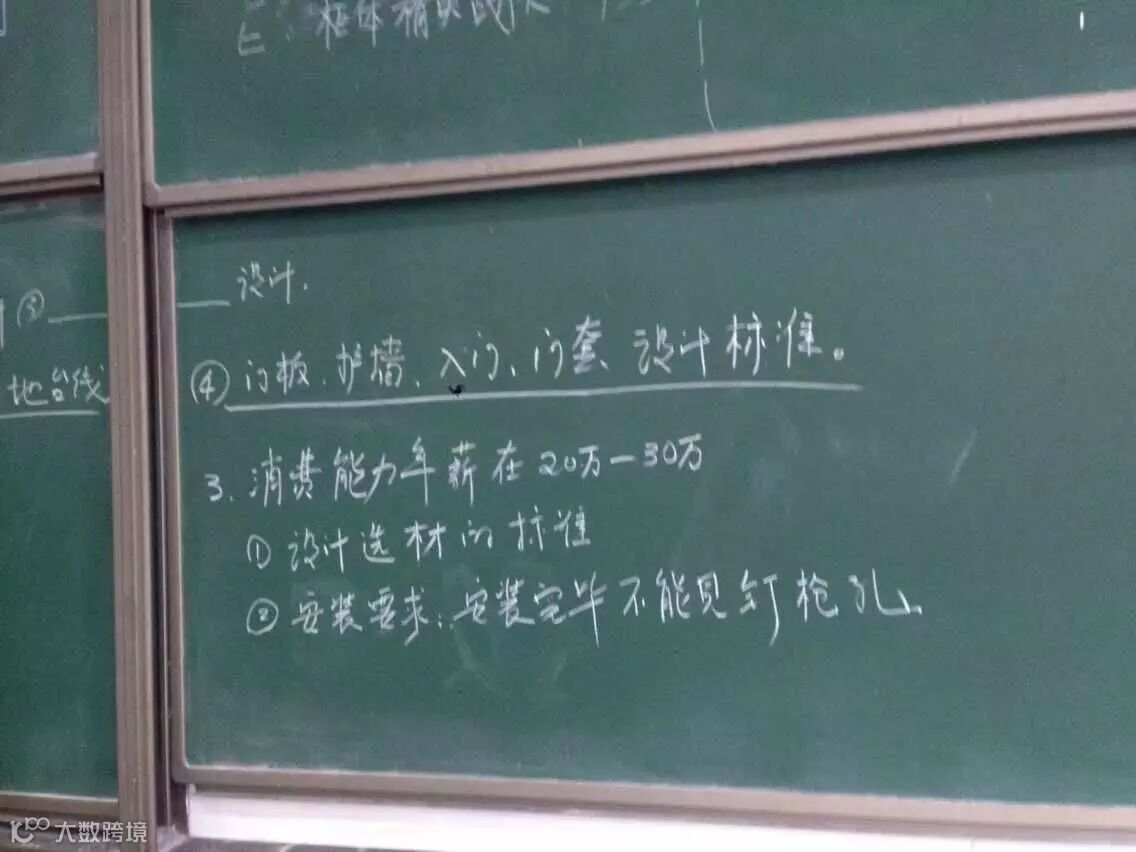 E: 柜体精
③______设计.
地台线
④门板、护墙、入门、门套 设计标准。
3. 消费能力年薪在20万—30万
①设计选材的标准
②安装要求:安装完毕不能见钉枪孔.
大数跨境